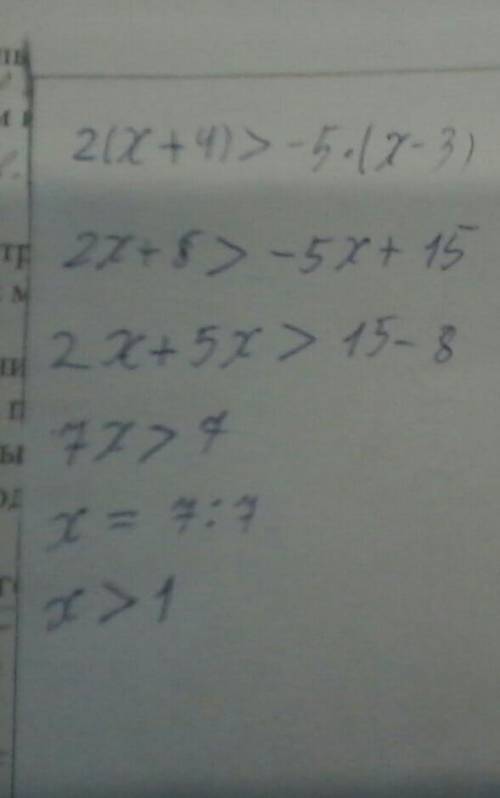 2(x+4)>-5·(x-3)
2x+8>-5x+15
2x+5x>15-8
7x>7
x=7:7
x>1